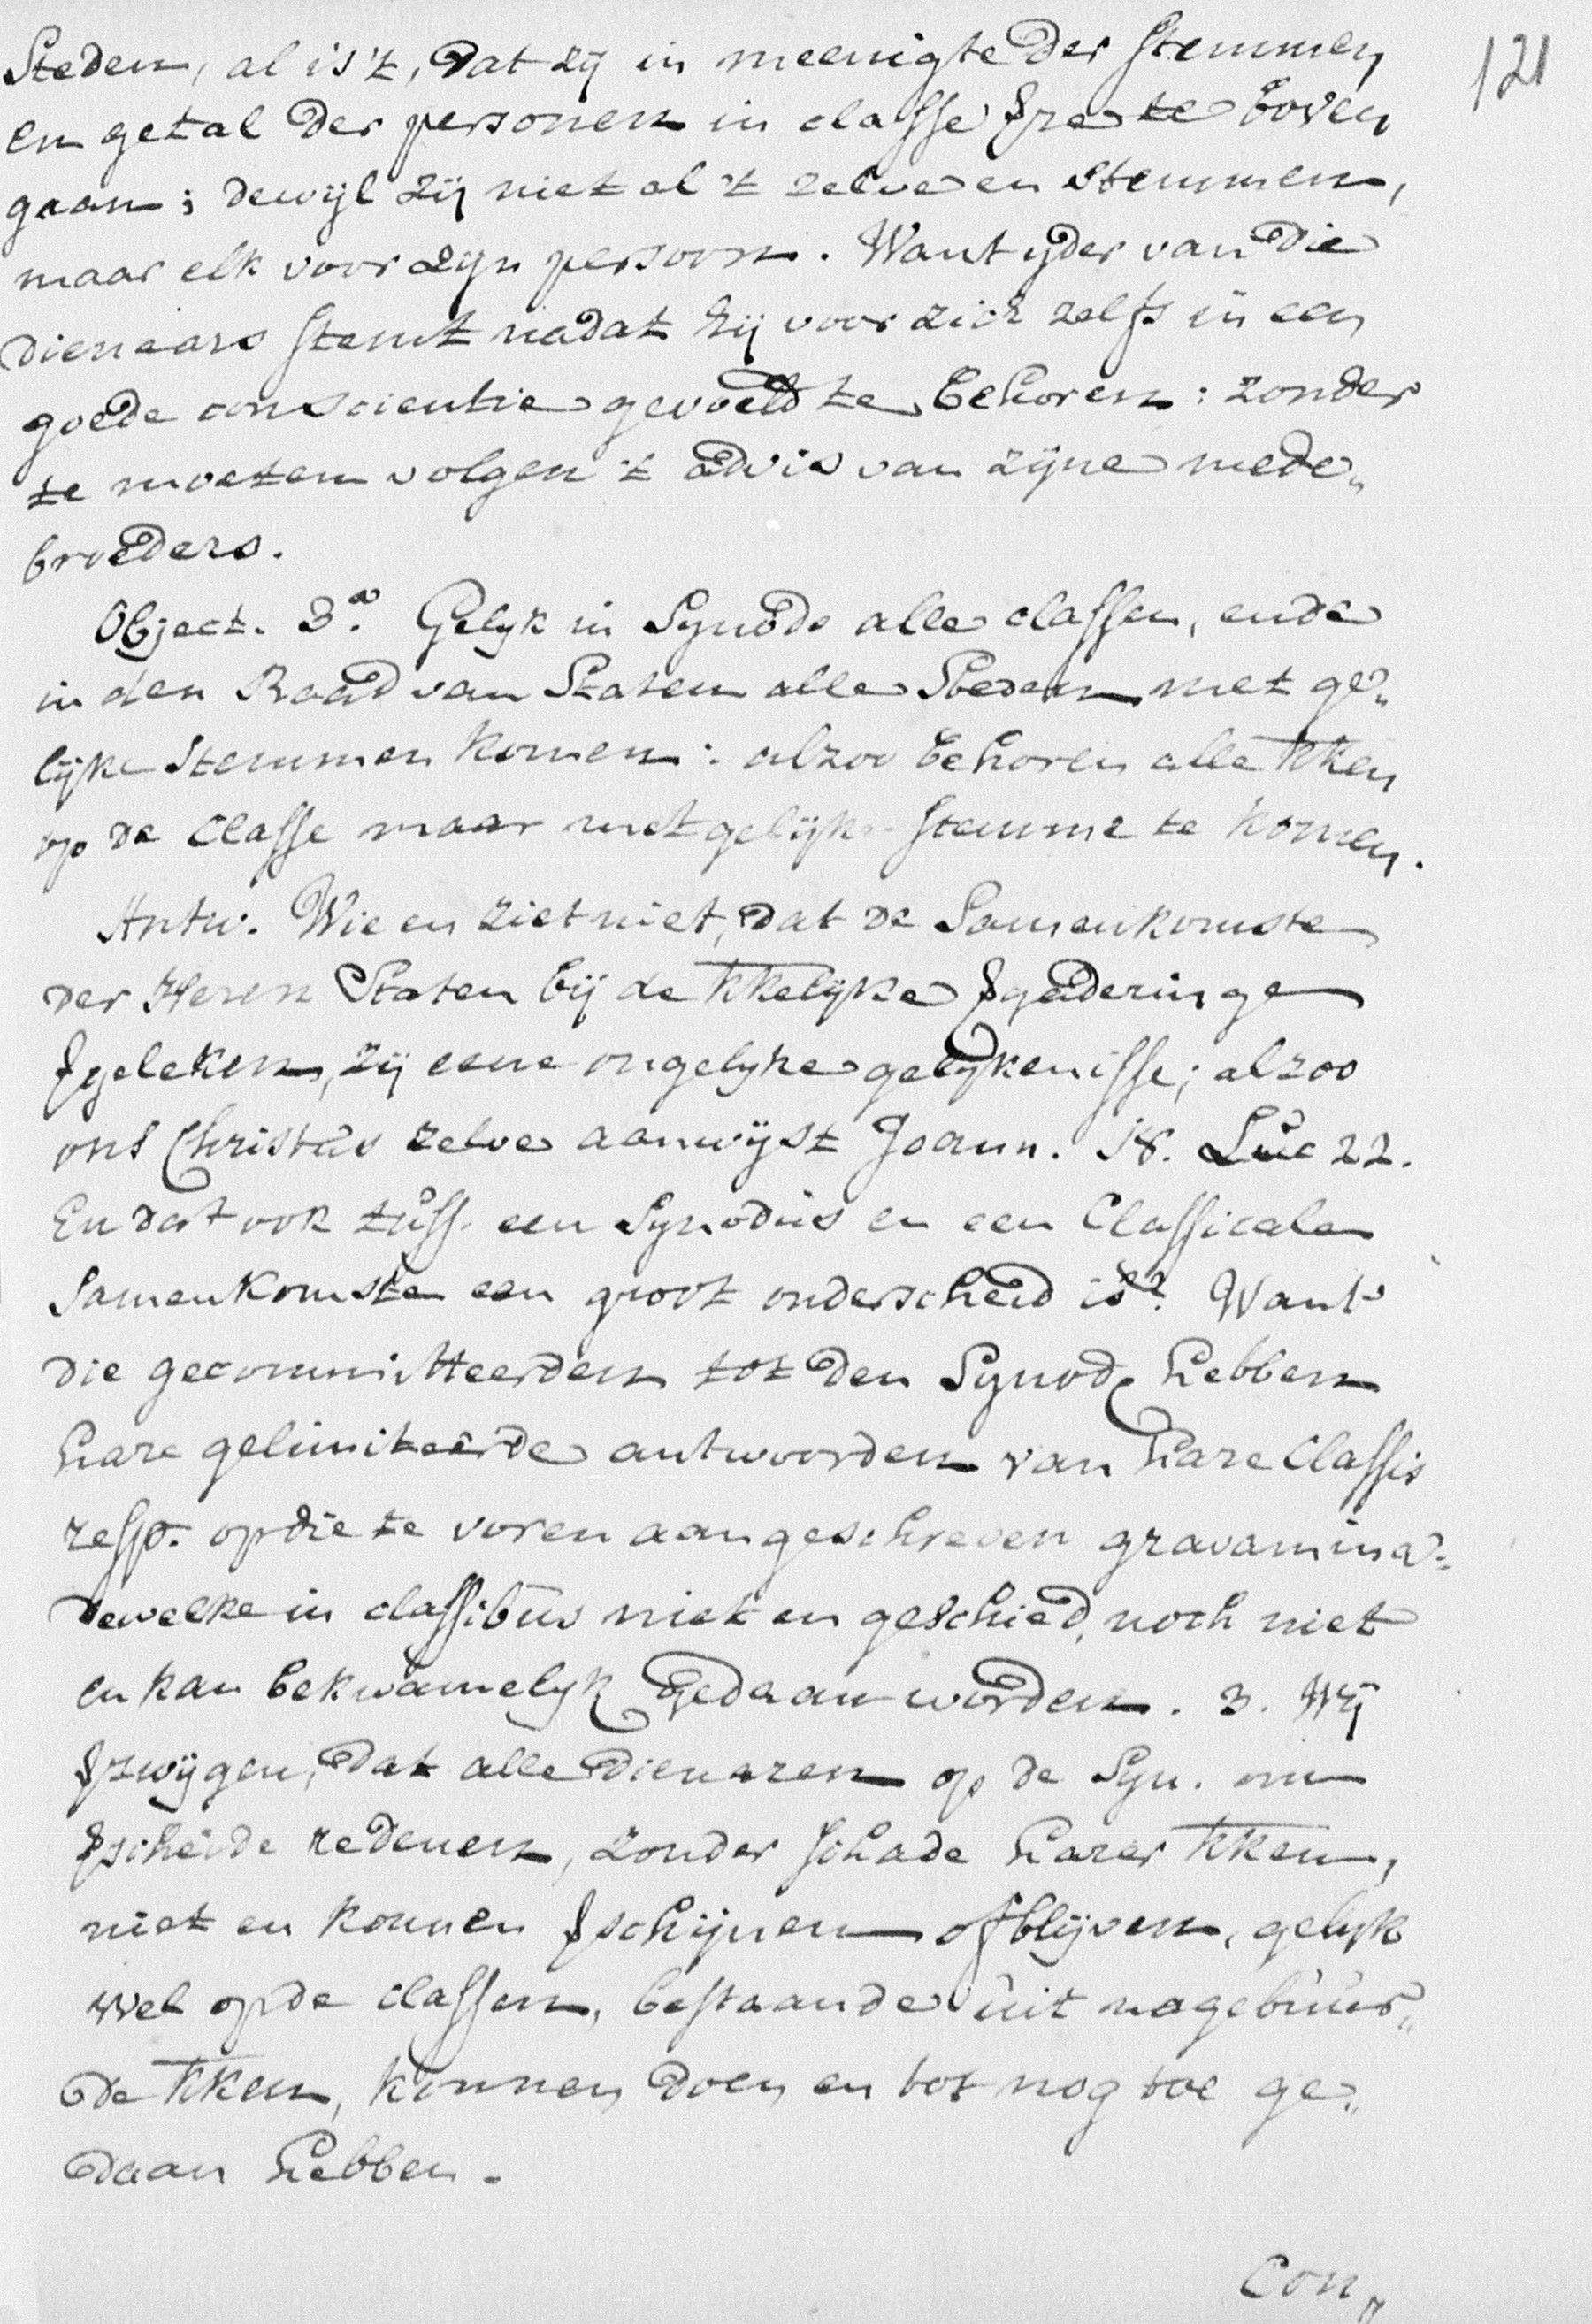 121
Steden, al is 't, dat zij in meenigte der stemmen
en getal der personen in classe verre te boven
gaan; dewijl zij niet al 't zelve en stemmen,
maar elk voor zijn persoon. Want yder van die
dienaars stemt nadat hij voor zich zelfs in een
goede conscientie gevoeld te behoren: zonder
te moeten volgen 't advis van zijne mede„
broeders.
Object. 3.° Gelyk in Synodo alle classen, ende
in den Raad van Staten alle Steden met ge„
lijke stemmen komen: alzoo behoren alle kken
op de Classe maar met gelijke stemme te komen.
Antw. Wie en ziet niet, dat de Samenkomste
der Heren Staten bij de kkelijke vgaderinge
vgeleken, zij eene ongelyke gelykenisse; alzoo
ons Christus zelve aanwijst Joann. 18. Luc 22.
En dat ook tuss. een Synodus en een Classicale
Samenkomste een groot onderscheid is? Want
die gecommitteerden tot den Synod. hebben
hare gelimiteerde antwoorden van hare Classis
resp. op die te voren aangeschreven gravamina:
dewelke in classibus niet en geschied, noch niet
en kan bekwamelyk gedaan worden. 3. Wij
vzwijgen, dat alle dienaren op de Syn. om
vscheide redenen, zonder schade harer kken,
niet en konnen vschijnen of blijven, gelyk
wel op de classen, bestaande uit nagebuur„
de kken, konnen doen en tot nog toe ge„
daan hebben.
Con„